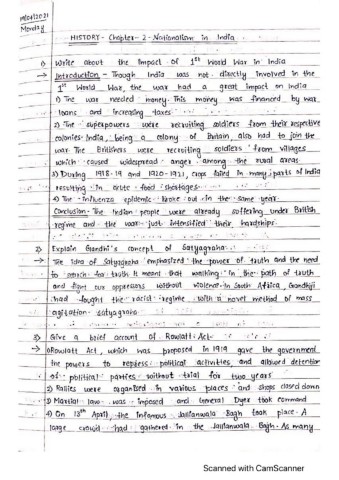 19/04/2021
Monday
HISTORY - Chapter - 2 - Nationalism in India
1) Write about the impact of 1st World War in India
→ Introduction - Though India was not directly involved in the
1st World War, the war had a great impact on India
1) The war needed money. This money was financed by war
loans and increasing taxes.
2) The superpowers were recruiting soldiers from their respective
colonies. India, being a colony of Britain, also had to join the
war. The Britishers were recruiting soldiers from villages
which caused widespread anger among the rural areas.
3) During 1918-19 and 1920-1921, crops failed in many parts of India
resulting in acute food shortages.
4) The influenza epidemic broke out in the same year.
Conclusion - The Indian people were already suffering under British
regime and the war just intensified their hardships.
2) Explain Gandhi's concept of Satyagraha
→ The idea of Satyagraha emphasized the power of truth and the need
to search for truth. It meant that walking in the path of truth
and fight our oppressors without violence. In South Africa, Gandhiji
had fought the racial regime with a novel method of mass
agitation - satyagraha
3) Give a brief account of Rowlatt Act
→ 1) Rowlatt Act, which was proposed in 1919 gave the government
the powers to repress political activities, and allowed detention
of political parties without trial for two years
2) Rallies were organized in various places and shops closed down
3) Martial law was imposed and General Dyer took command
4) On 13th April, the infamous Jallianwala Bagh took place. A
large crowd had gathered in the Jallianwala Bagh. As many
Scanned with CamScanner